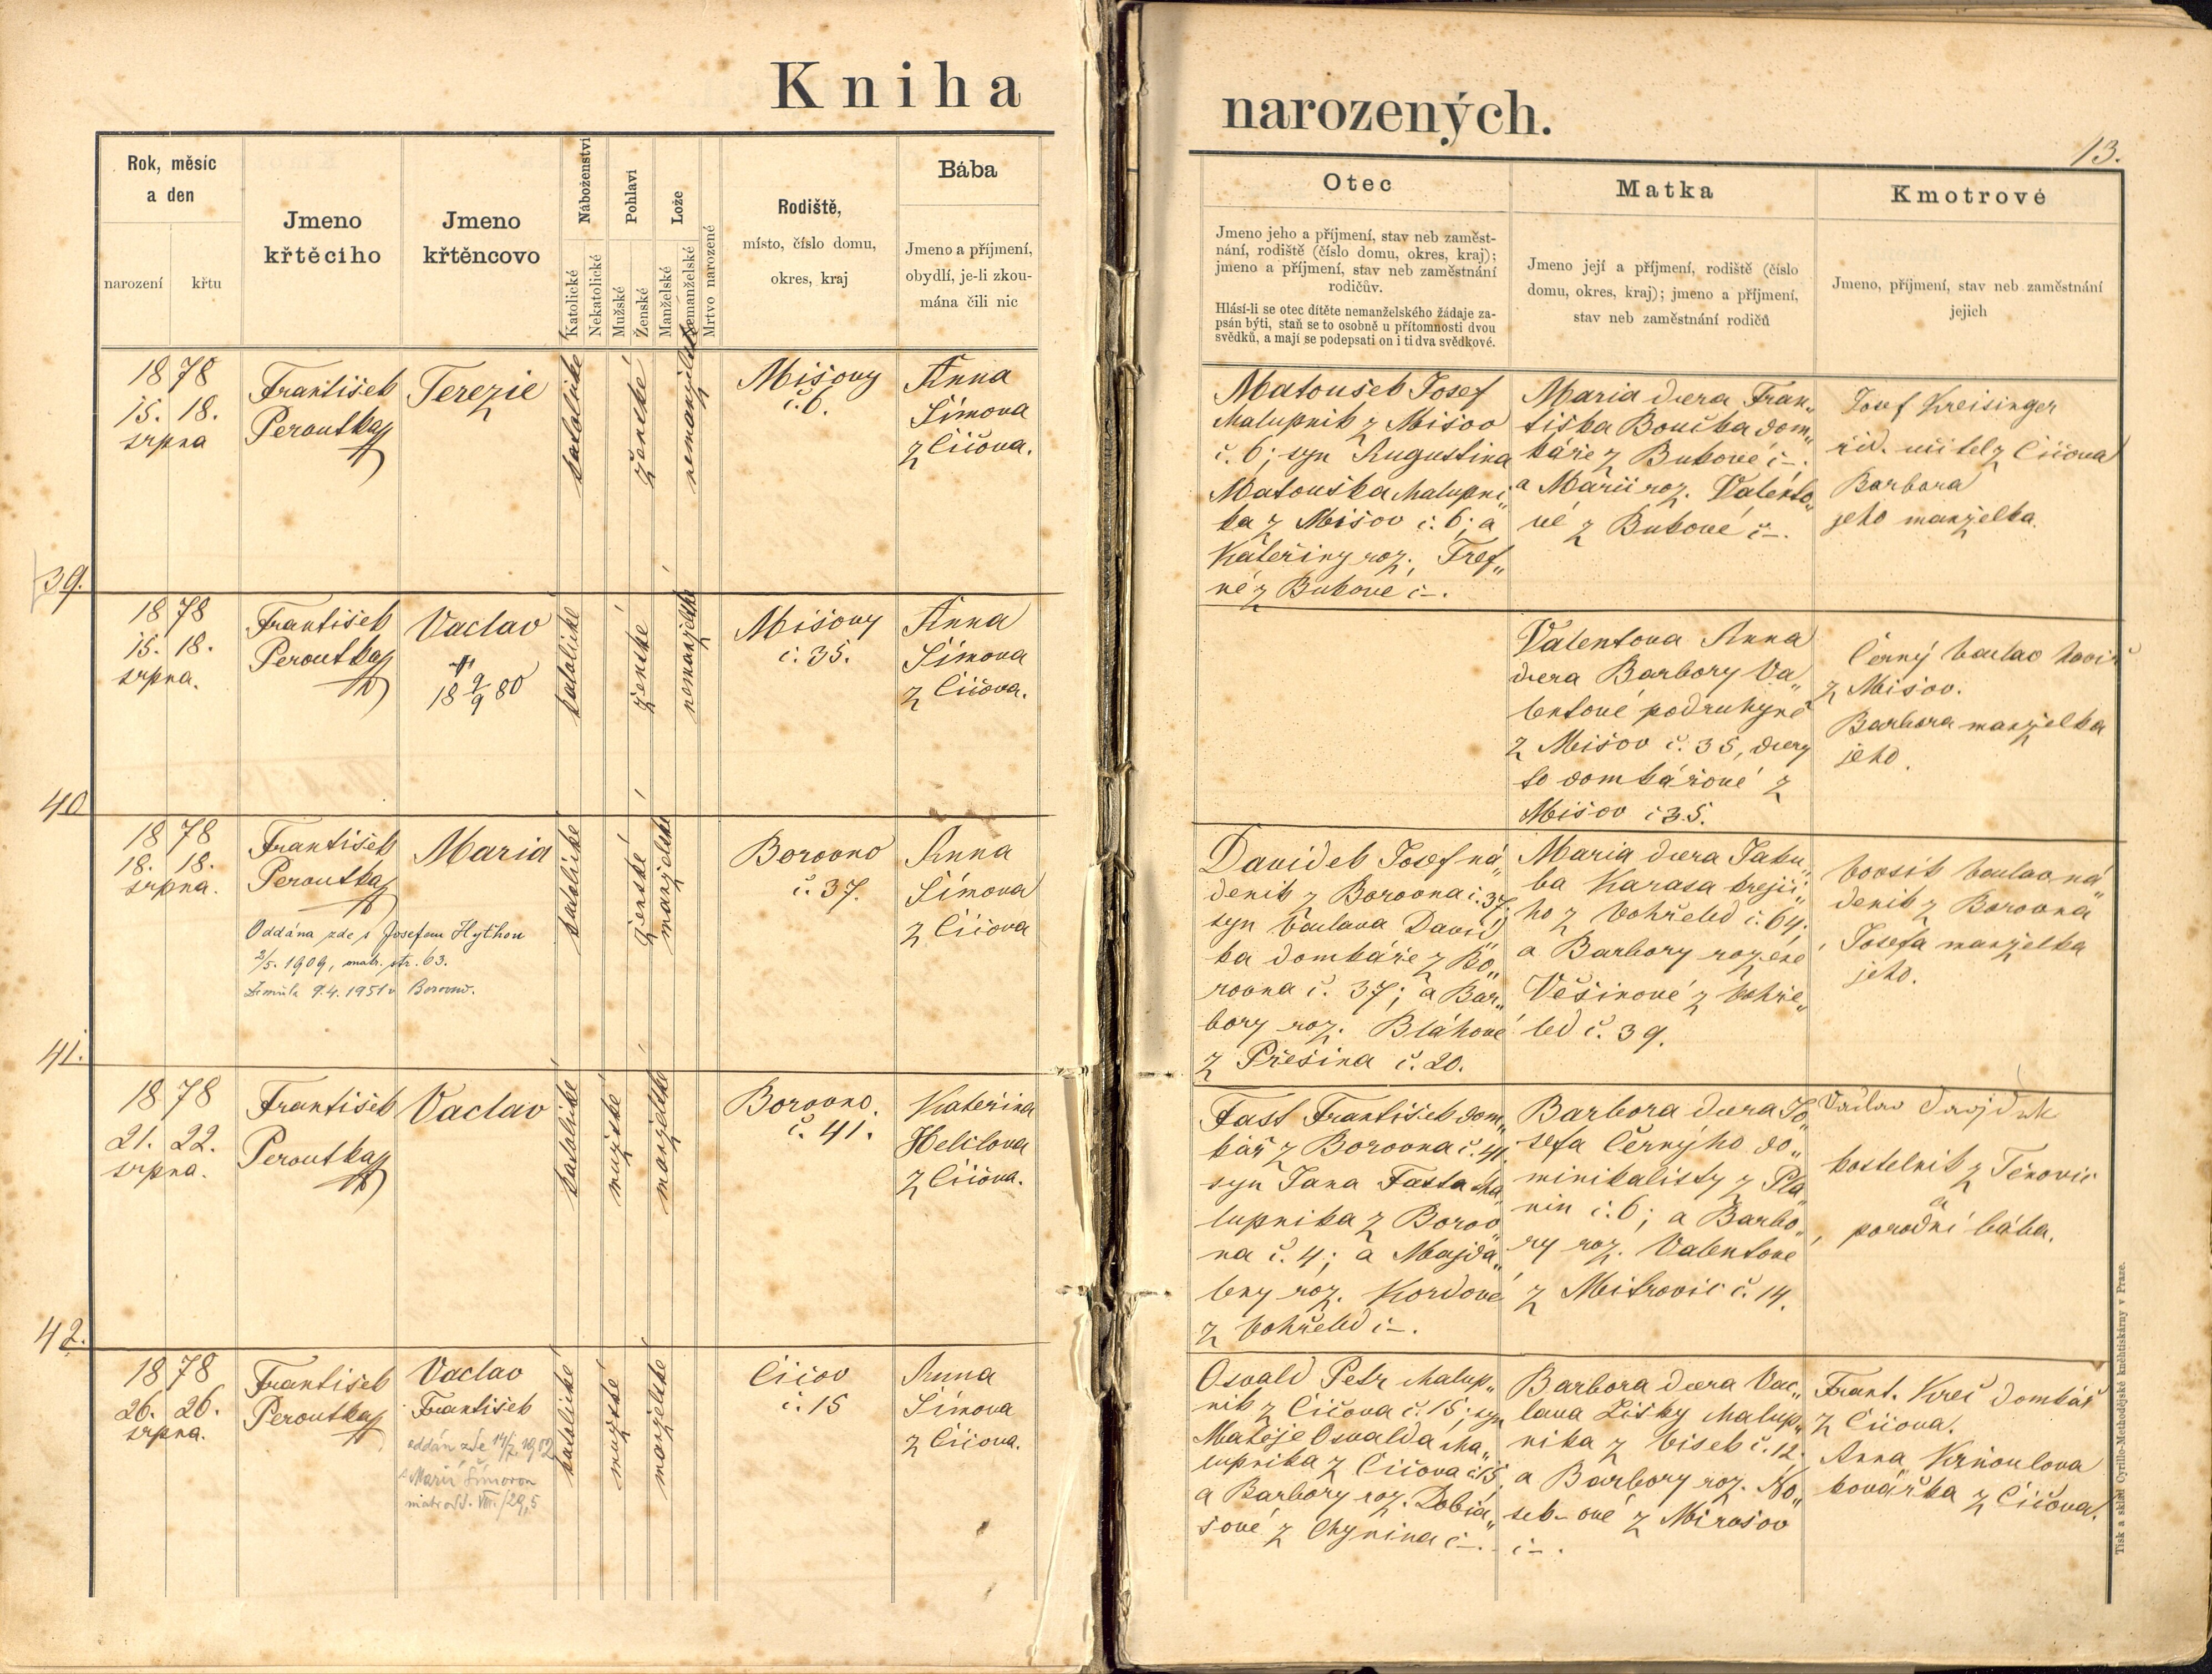 Kniha
narozených.
13.
Rok, měsíc
a den
narození
křtu
Jmeno
křtěciho
Jmeno
křtěncovo
Náboženství
Katolické
Nekatolické
Pohlaví
Mužské
Ženské
Lože
Manželské
Nemanželské
Mrtvo narozené
Rodiště,
místo, číslo domu,
okres, kraj
Bába
Jmeno a příjmení,
obydlí, je-li zkou-
mána čili nic
Otec
Jmeno jeho a příjmení, stav neb zaměst-
nání, rodiště (číslo domu, okres, kraj);
jmeno a příjmení, stav neb zaměstnání
rodičův.
Hlásí-li se otec dítěte nemanželského žádaje za-
psán býti, staň se to osobně u přítomnosti dvou
svědků, a mají se podepsati on i ti dva svědkové.
Matka
Jmeno její a příjmení, rodiště (číslo
domu, okres, kraj); jmeno a příjmení,
stav neb zaměstnání rodičů
Kmotrové
Jmeno, příjmení, stav neb zaměstnání
jejich
1878
15. 18.
srpna
František
Peroutka
Terezie
katolické
ženské
nemanželské
Mišovy
č. 6.
Anna
Šimova
z Čičova.
Matoušek Josef
chalupnik z Mišov
č. 6; syn Augustina
Matouška chalupni„
ka z Mišov č. 6; a
Kateřiny roz. Tref„
né z Bukové č –.
Maria dcera Fran„
tiška Boučka dom„
káře z Bukové č –;
a Marii roz. Valento„
vé z Bukové č –.
Josef Kreisinger
řid. učitel z Čičova
Barbara
jeho manželka.
39.
1878
15. 18.
srpna.
František
Peroutka
Vaclav
18 9/9 80
katolické
ženské
nemanželské
Mišovy
č. 35.
Anna
Šimova
z Čičova.
Valentova Anna
dcera Barbory Va„
lentové podruhyně
z Mišov č. 35, dcery
to domkářové z
Mišov č 35.
Černý Vaclav
z Mišov.
Barbora manželka
jeho.
40
1878
18. 18.
srpna.
František
Peroutka
Maria
Oddána zde s Josefem Hythou
2/5. 1909, matr. str. 63.
Zemřela 9.4. 1951 v Borovně.
katolické
ženské
manželské
Borovno
č. 37.
Anna
Šimova
z Čičova
Davidek Josef ná„
denik z Borovna č. 37.
syn Vaclava David„
ka domkáře z Bo„
rovna č. 37; a Bar„
bory roz. Bláhové
z Přešina č. 20.
Maria dcera Jaku„
ba Karasa krejči„
ho z Vohřeled č. 64;
a Barbory rozené
Věšinové z Vohře„
led č. 39.
Vovsik Vaclav ná„
denik z Borovna
Josefa manželka
jeho.
41.
1878
21. 22.
srpna.
František
Peroutka
Vaclav
katolické
mužské
manželské
Borovno.
č. 41.
Kateřina
Helclova
z Čičova.
Fast František dom„
kář z Borovna č. 41.
syn Jana Fasta cha„
lupnika z Borov„
na č. 4; a Majda„
leny roz. Kordové
z Vohřeled č –.
Barbora dcera Jo„
sefa Černýho do„
minikalisty z Pla„
nin č. 6; a Barbo„
ry roz. Valentove
z Mitrovic č. 14.
Václav
kostelnik z Těnovic
a
porodní bába.
42.
1878
26. 26.
srpna.
František
Peroutka
Vaclav
František
oddán zde 14/7 1902
s Marií Šimovou
matr. odd. VIII./29,5
katolické
mužské
manželské
Čičov
č. 15
Anna
Šimova
z Čičova.
Osvald Petr chalup„
nik z Čičova č. 15; syn
Matěje Osvalda cha„
lupnika z Čičova č 15.
a Barbory roz. Dobiá„
šové z Chynina č –.
Barbora dcera Vac„
lava Lišky chalup„
nika z Visek č. 12.
a Barbory roz. No„
sek-ové z Mirošov
č –.
Frant. Kreč domkář
z Čičova.
Anna Krňoulova
kovářka z Čičova.
Tisk a sklad Cyrillo-Methodějské knihtiskárny v Praze.